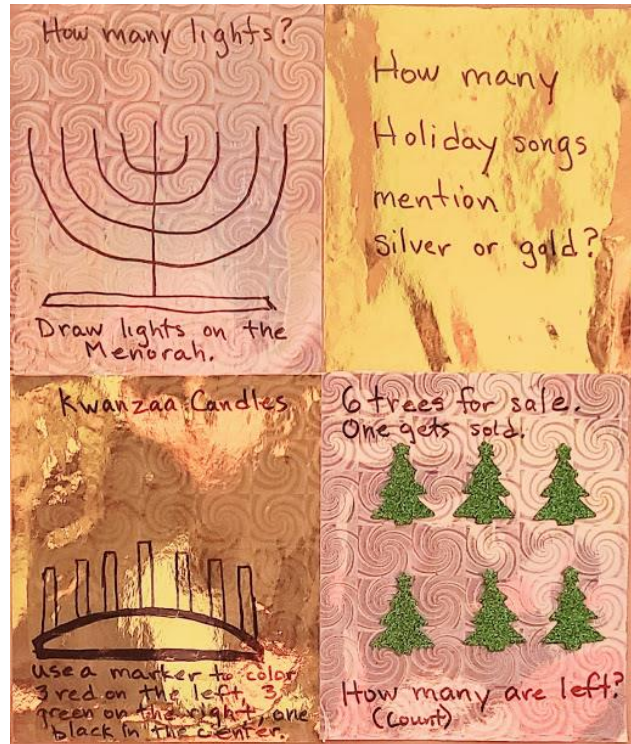 How many lights?
Draw lights on the
Menorah.
How many
Holiday songs
mention
silver or gold?
Kwanzaa Candles
use a marker to color
3 red on the left, 3
green on the right, one
black in the center.
6 trees for sale.
One gets sold.
How many are left?
(count)